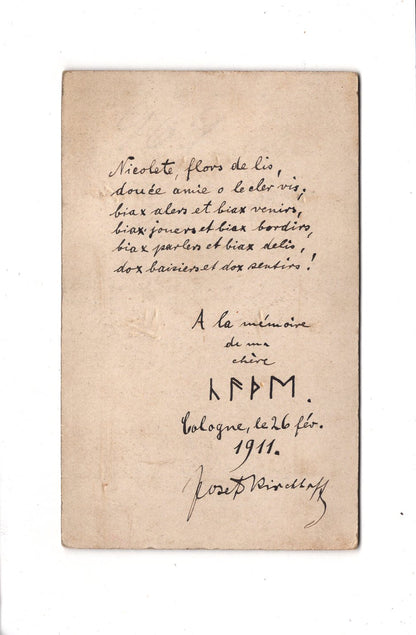 Nicolete, flors de lis,
doucé amie o le cler vis;
biax alers et biax venirs,
biax jouers et biax bordirs,
biax parlers et biax delis,
dox baisiers et dox sentirs!
A la mémoire
de ma
chère
ᚳᚫᚦᛖ.
Cologne, le 26 fév.
1911.
Josef Kirchhoff